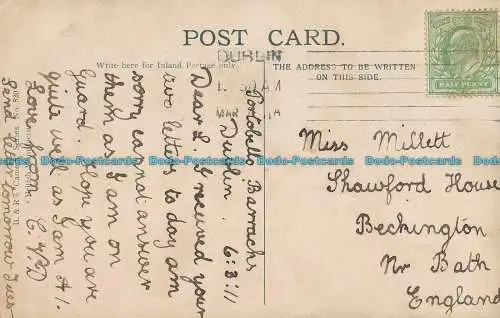 POST CARD.
Write here for Inland Postage only.
THE ADDRESS TO BE WRITTEN
ON THIS SIDE.
DUBLIN
MAR
HALF PENNY
Portobello Barracks
Dublin. 6:3:11
Dear L. I received your
two letters to day am
sorry ca not answer
them as I am on
guard. Hope you are
quite well as I am A1.
Love from
Send letter tomorrow Tues
Miss Millett
Shawford House
Beckington
Nr Bath
England
Dodo-Postcards Dodo-Postcards Dodo-Postcards Dodo-Postcards Dodo-Postcards Dodo-Postcards